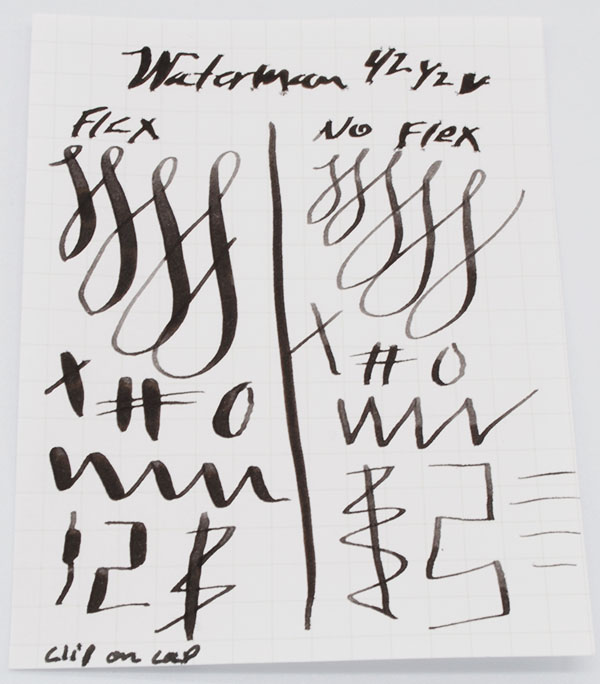 Waterman 42 1/2 V
Flex
No Flex
X # 0
X # 0
clip on cap